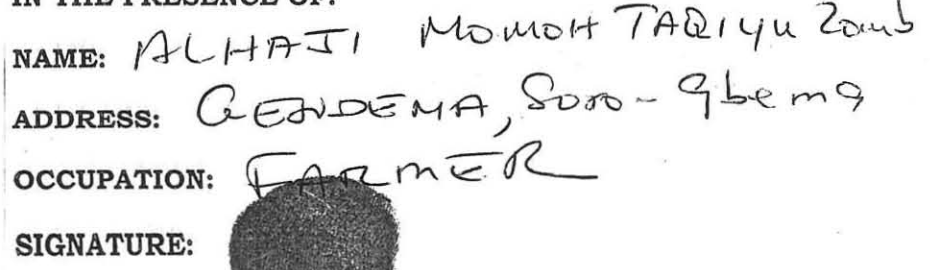 IN THE PRESENCE OF:
NAME: ALHAJI MOMOH TAQIYU Zomb
ADDRESS: GENDEMA, Soro-Gbema
OCCUPATION: FARMER
SIGNATURE: